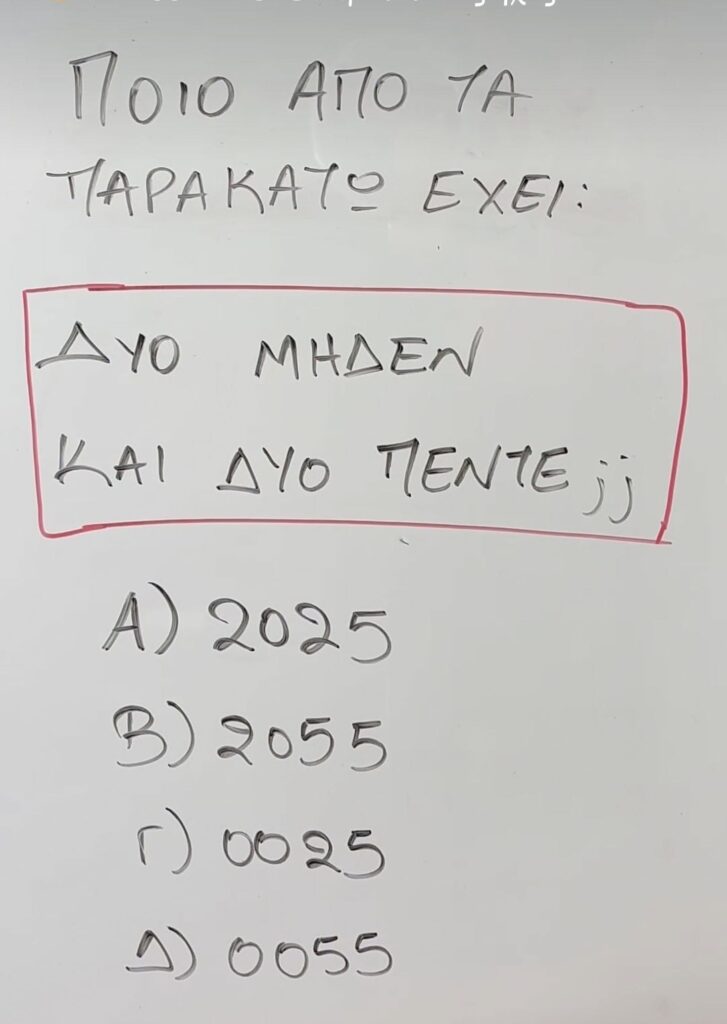 ΠΟΙΟ ΑΠΟ ΤΑ
ΠΑΡΑΚΑΤΩ ΕΧΕΙ:
ΔΥΟ ΜΗΔΕΝ
ΚΑΙ ΔΥΟ ΠΕΝΤΕ ;;
Α) 2025
Β) 2055
Γ) 0025
Δ) 0055